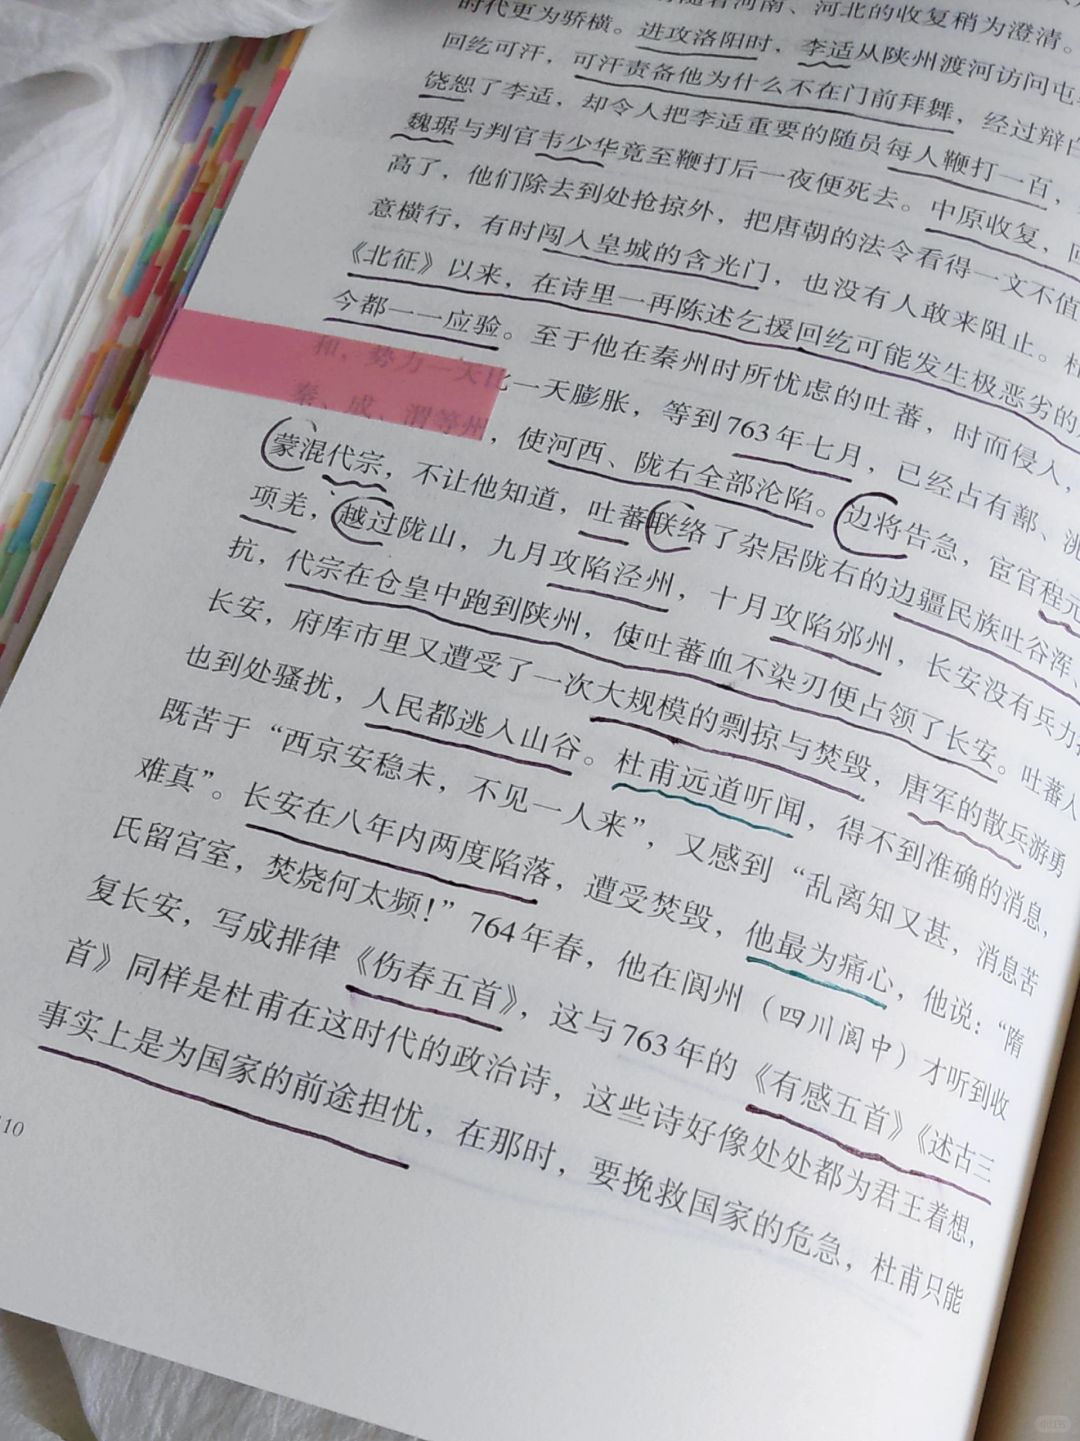 随着河南、河北的收复稍为澄清。
时代更为骄横。进攻洛阳时，李适从陕州渡河访问屯
回纥可汗，可汗责备他为什么不在门前拜舞，经过辩白
饶恕了李适，却令人把李适重要的随员每人鞭打一百，
魏琚与判官韦少华竟至鞭打后一夜便死去。中原收复，回
高了，他们除去到处抢掠外，把唐朝的法令看得一文不值
意横行，有时闯入皇城的含光门，也没有人敢来阻止。杜
《北征》以来，在诗里一再陈述乞援回纥可能发生极恶劣的
今都一一应验。至于他在秦州时所忧虑的吐蕃，时而侵入，
和，势力一天比一天膨胀，等到763年七月，已经占有鄯、洮
秦、成、渭等州，使河西、陇右全部沦陷。边将告急，宦官程元
蒙混代宗，不让他知道，吐蕃联络了杂居陇右的边疆民族吐谷浑、
项羌，越过陇山，九月攻陷泾州，十月攻陷邠州，长安没有兵力
抗，代宗在仓皇中跑到陕州，使吐蕃血不染刃便占领了长安。吐蕃人
长安，府库市里又遭受了一次大规模的剽掠与焚毁，唐军的散兵游勇
也到处骚扰，人民都逃入山谷。杜甫远道听闻，得不到准确的消息，
既苦于“西京安稳未，不见一人来”，又感到“乱离知又甚，消息苦
难真”。长安在八年内两度陷落，遭受焚毁，他最为痛心，他说：“隋
氏留宫室，焚烧何太频！”764年春，他在阆州（四川阆中）才听到收
复长安，写成排律《伤春五首》，这与763年的《有感五首》《述古三
首》同样是杜甫在这时代的政治诗，这些诗好像处处都为君王着想，
事实上是为国家的前途担忧，在那时，要挽救国家的危急，杜甫只能
10